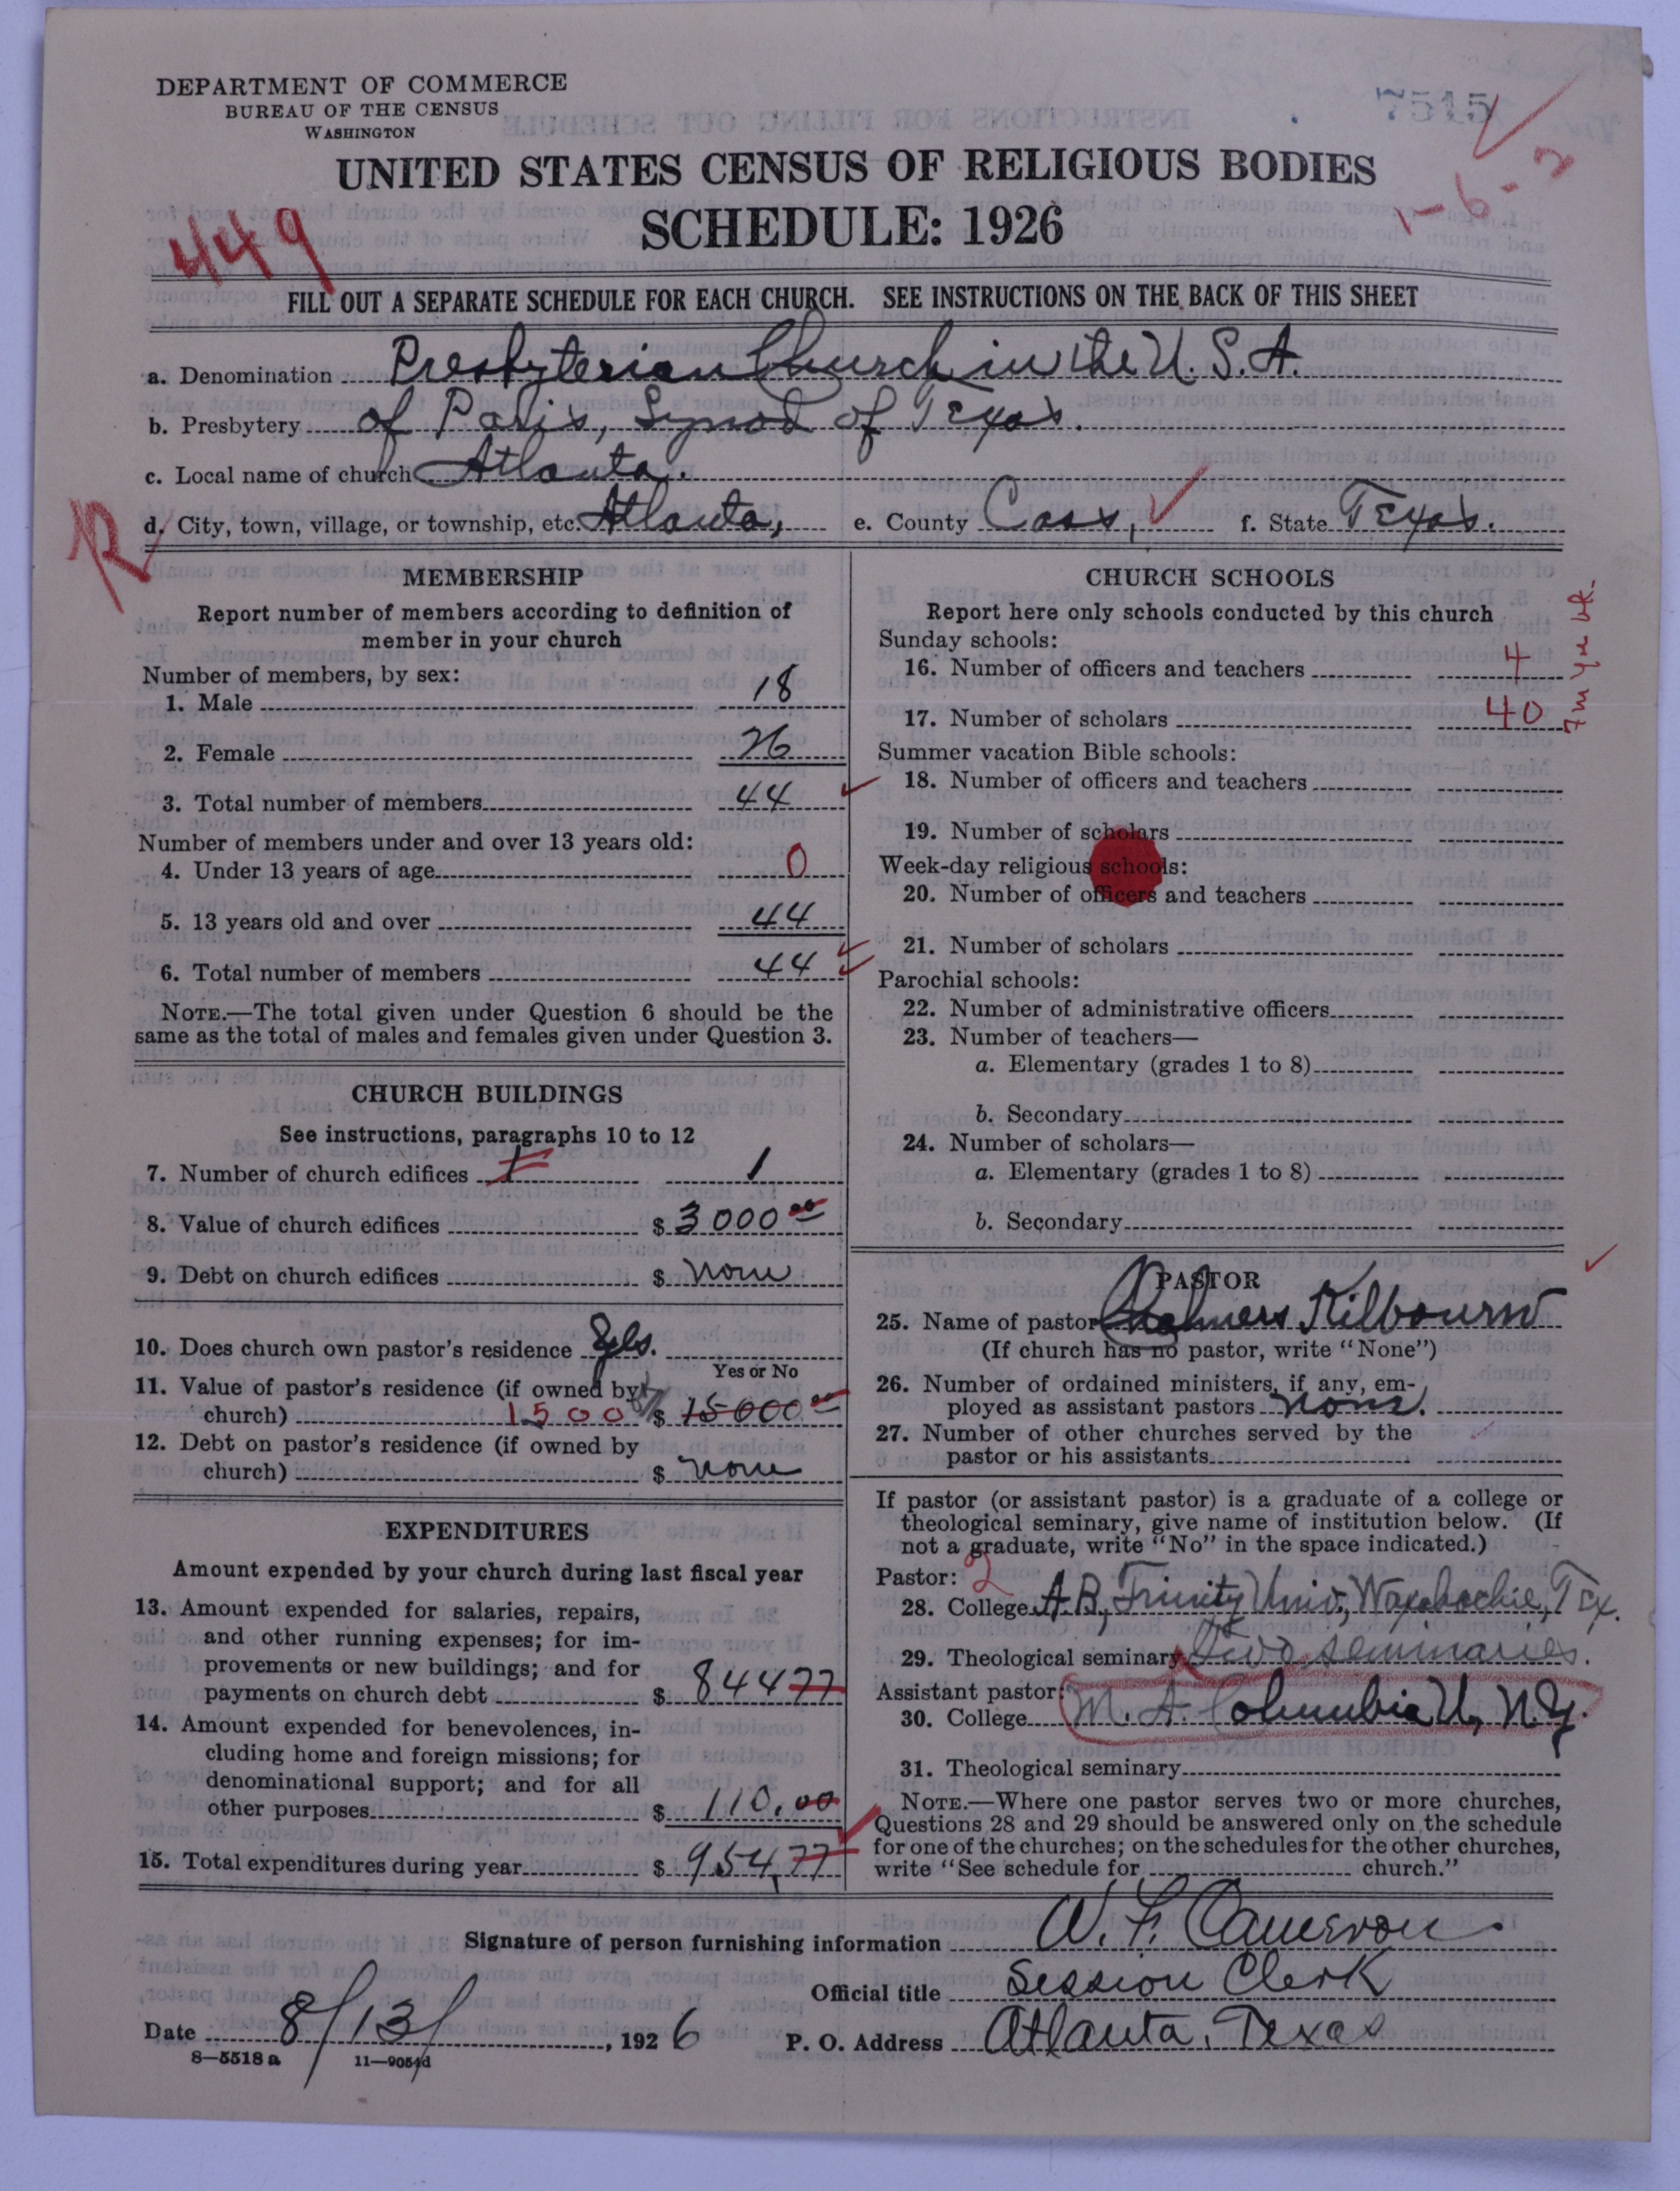 DEPARTMENT OF COMMERCE
BUREAU OF THE CENSUS
WASHINGTON
7515
UNITED STATES CENSUS OF RELIGIOUS BODIES
SCHEDULE: 1926
449
1-6-2
FILL OUT A SEPARATE SCHEDULE FOR EACH CHURCH. SEE INSTRUCTIONS ON THE BACK OF THIS SHEET
a. Denomination Presbyterian Church in the U.S.A.
b. Presbytery of Paris, Synod of Texas.
c. Local name of church Atlanta.
d. City, town, village, or township, etc. Atlanta, e. County Cass, f. State Texas.
R
MEMBERSHIP
Report number of members according to definition of
member in your church
Number of members, by sex:
1. Male 18
2. Female 26
3. Total number of members 44
Number of members under and over 13 years old:
4. Under 13 years of age 0
5. 13 years old and over 44
6. Total number of members 44
NOTE.—The total given under Question 6 should be the
same as the total of males and females given under Question 3.
CHURCH BUILDINGS
See instructions, paragraphs 10 to 12
7. Number of church edifices 1 1
8. Value of church edifices $ 3000 00
9. Debt on church edifices $ none
10. Does church own pastor's residence Yes.
Yes or No
11. Value of pastor's residence (if owned by
church) 1500 $ 15000 00
12. Debt on pastor's residence (if owned by
church) $ none
EXPENDITURES
Amount expended by your church during last fiscal year
13. Amount expended for salaries, repairs,
and other running expenses; for im-
provements or new buildings; and for
payments on church debt $ 844 77
14. Amount expended for benevolences, in-
cluding home and foreign missions; for
denominational support; and for all
other purposes $ 110.00
15. Total expenditures during year $ 954 77
CHURCH SCHOOLS
Report here only schools conducted by this church
Sunday schools:
16. Number of officers and teachers 4
17. Number of scholars 40
Summer vacation Bible schools:
18. Number of officers and teachers
19. Number of scholars
Week-day religious schools:
20. Number of officers and teachers
21. Number of scholars
Parochial schools:
22. Number of administrative officers
23. Number of teachers—
a. Elementary (grades 1 to 8)
b. Secondary
24. Number of scholars—
a. Elementary (grades 1 to 8)
b. Secondary
PASTOR
25. Name of pastor Chalmers Kilbourn
(If church has no pastor, write "None")
26. Number of ordained ministers, if any, em-
ployed as assistant pastors none.
27. Number of other churches served by the
pastor or his assistants
If pastor (or assistant pastor) is a graduate of a college or
theological seminary, give name of institution below. (If
not a graduate, write "No" in the space indicated.)
Pastor: 2
28. College A.B., Trinity Univ., Waxahachie, Tex.
29. Theological seminary Two seminaries.
Assistant pastor:
30. College M.A. Columbia U, N.Y.
31. Theological seminary
NOTE.—Where one pastor serves two or more churches,
Questions 28 and 29 should be answered only on the schedule
for one of the churches; on the schedules for the other churches,
write "See schedule for church."
Signature of person furnishing information W. F. Cameron.
Official title Session Clerk
Date 8/13/, 1926 P. O. Address Atlanta, Texas
8—5518 a 11—9054d